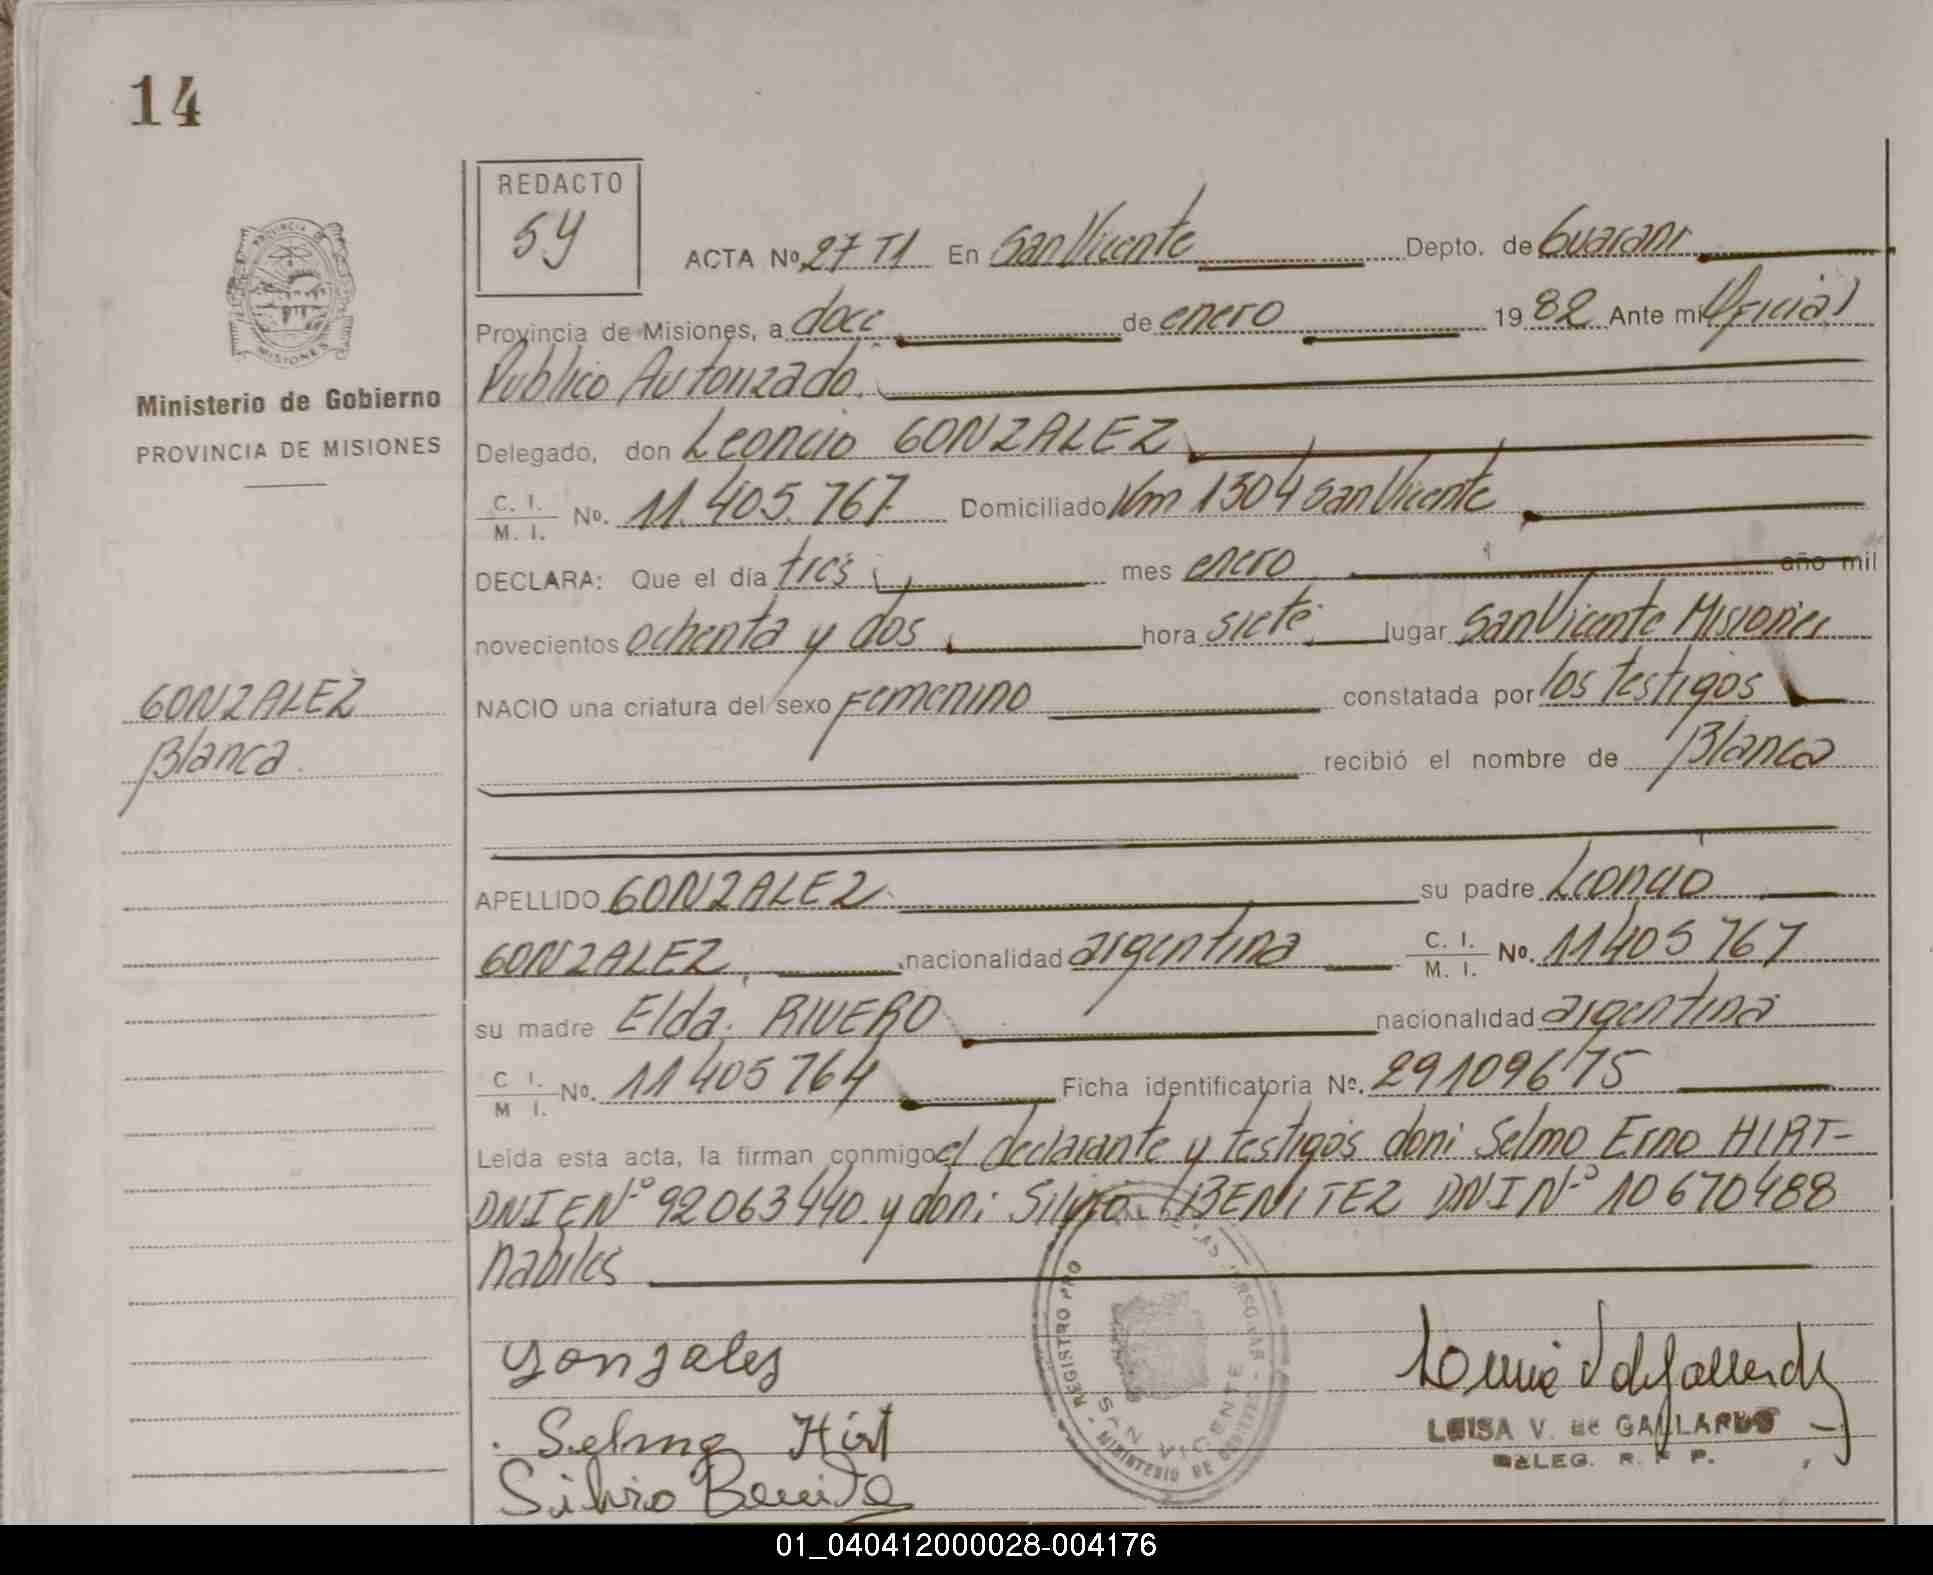 14
REDACTO
54
ACTA Nº 27 T1 En San Vicente Depto. de Guarani
Provincia de Misiones, a doce de enero 1982 Ante mi Oficial
Publico Autorizado.
PROVINCIA DE
MISIONES
Ministerio de Gobierno
PROVINCIA DE MISIONES
Delegado, don Leoncio GONZALEZ
C. I.
M. I. No. 11.405.767 Domiciliado Km 1304 San Vicente
DECLARA: Que el día tres mes enero año mil
novecientos ochenta y dos hora siete lugar San Vicente Misiones
GONZALEZ
Blanca
NACIO una criatura del sexo Femenino constatada por los testigos
recibió el nombre de Blanca
APELLIDO GONZALEZ su padre Leoncio
GONZALEZ, nacionalidad argentina C. I.
M. I. No. 11405767
su madre Elda RIVERO nacionalidad argentina
C I.
M I. No. 11405764 Ficha identificatoria Nº. 29109675
Leída esta acta, la firman conmigo el declarante y testigos don: Selmo Erno HIRT-
DNI E Nº 92063440 y don: Silvio BENITEZ DNI Nº 10670488
habiles
REGISTRO PRO PERSONAS
SAN VICENTE
MINISTERIO DE GOBIERNO
Gonzales
Selmo Hirt
Silvio Benite
LUISA V. de GALLARDO
DELEG. R. P. P.
01_040412000028-004176